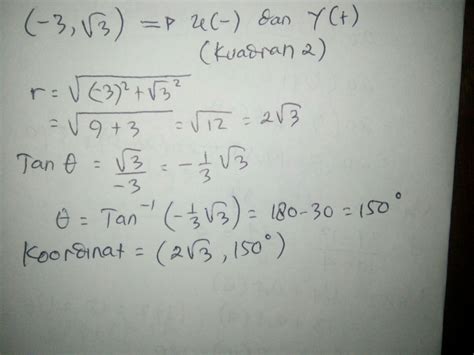 (-3, √3) => x(-) dan y(+)
(Kuadran 2)
r = √((-3)² + √3²)
= √(9 + 3) = √12 = 2√3
Tan θ = √3/-3 = -1/3 √3
θ = Tan⁻¹ (-1/3 √3) = 180-30 = 150°
Koordinat = (2√3, 150°)